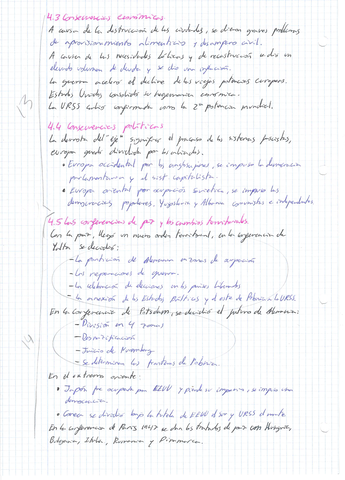 4.3 Consecuencias económicas
A causa de la destrucción de las ciudades, se dieron graves problemas
de aprovisionamiento alimenticio y desamparo civil.
A causa de las necesidades bélicas y de reconstrucción se dio un
elevado volumen de deuda y se dio una inflación.
La guerra aceleró el declive de las viejas potencias europeas.
Estados Unidos consolidó su hegemonía económica.
La URSS salió confirmada como la 2ª potencia mundial.
13
4.4 Consecuencias políticas
La derrota del "eje" significó el fracaso de los sistemas fascistas,
europa quedó dividida por los aliados.
• Europa occidental por los anglosajones, se impuso la democracia
parlamentaria y el sist. capitalista.
• Europa oriental por ocupación soviética, se impuso las
democracias populares, Yugoslavia y Albania comunistas e independientes
4.5 Las conferencias de paz y los cambios territoriales
Con la paz, llegó un nuevo orden territorial, en la conferencia de
Yalta se decidió:
- La partición de Alemania en zonas de ocupación
- Las reparaciones de guerra.
- La celebración de elecciones en países liberados
- La anexión de los Estados Bálticos y el este de Polonia la URSS.
14
En la Conferencia de Potsdam, se decidió el futuro de Alemania:
- División en 4 zonas
- Desnazificación
- Juicio de Nuremberg
- Se determinaron las fronteras de Polonia
En el extremo oriente
• Japón fue ocupado por EEUU y pierde su imperio, se impuso una
democracia
• Corea se dividió bajo la tutela de EEUU al sur y URSS al norte
En la conferencia de París 1947 se dan los tratados de paz con Hungría,
Bulgaria, Italia, Rumania y Dinamarca.